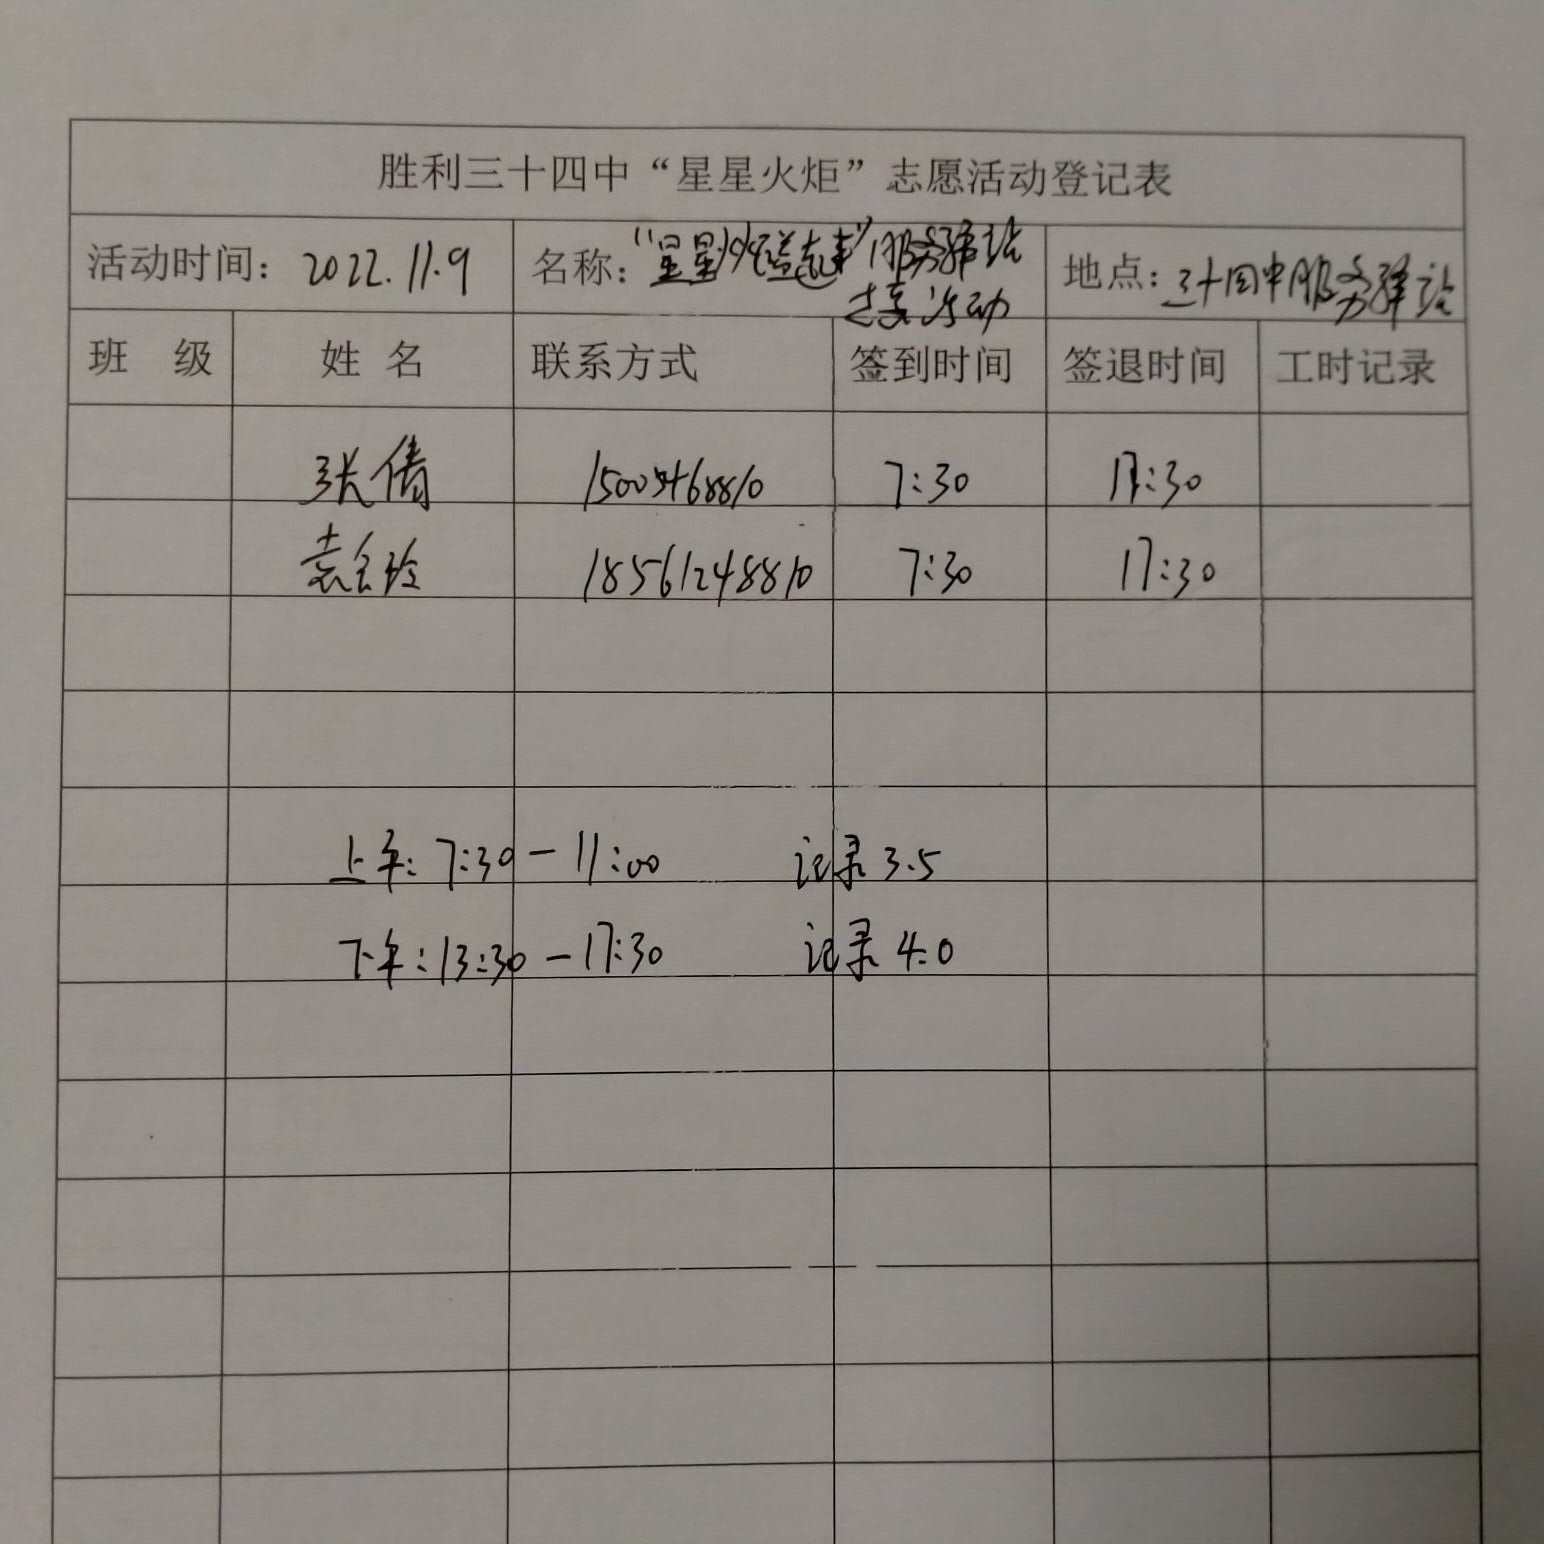 胜利三十四中“星星火炬”志愿活动登记表
活动时间：2022.11.9 名称：“星星火炬益起来”服务驿站 地点：三十四中服务驿站
活动
班 级 姓 名 联系方式 签到时间 签退时间 工时记录
张倩 15005468810 7:30 17:30
袁金玲 18561248810 7:30 17:30
上午：7:30－11:00 记录3.5
下午：13:30－17:30 记录4.0